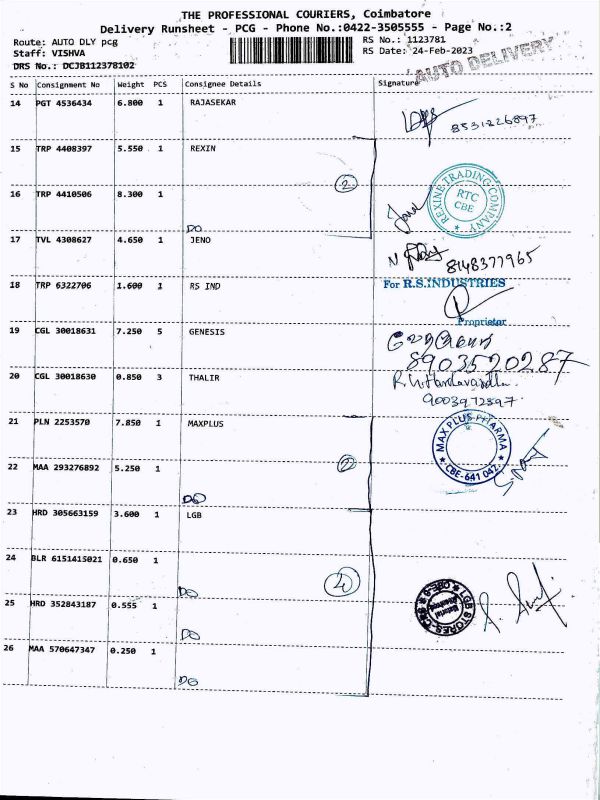 THE PROFESSIONAL COURIERS, Coimbatore
Delivery Runsheet - PCG - Phone No.:0422-3505555 - Page No.:2
Route: AUTO DLY pcg
Staff: VISHVA
DRS No.: DCJB112378102
RS No.: 1123781
RS Date: 24-Feb-2023
AUTO DELIVERY
S No Consignment No Weight PCS Consignee Details Signature
14 PGT 4536434 6.800 1 RAJASEKAR
8531226897
15 TRP 4408397 5.550 1 REXIN
2
REXINE TRADING COMPANY
RTC
CBE
16 TRP 4410506 8.300 1
DO
17 TVL 4308627 4.650 1 JENO
8148377965
18 TRP 6322706 1.600 1 RS IND
For R.S.INDUSTRIES
Proprietor
19 CGL 30018631 7.250 5 GENESIS
8903520287
20 CGL 30018630 0.850 3 THALIR
9003972897
21 PLN 2253570 7.850 1 MAXPLUS
MAXPLUS PHARMA
CBE-641 042
22 MAA 293276892 5.250 1
2
DO
23 HRD 305663159 3.600 1 LGB
24 BLR 6151415021 0.650 1
4
DO
LGB STORES
25 HRD 352843187 0.555 1
DO
26 MAA 570647347 0.250 1
DO